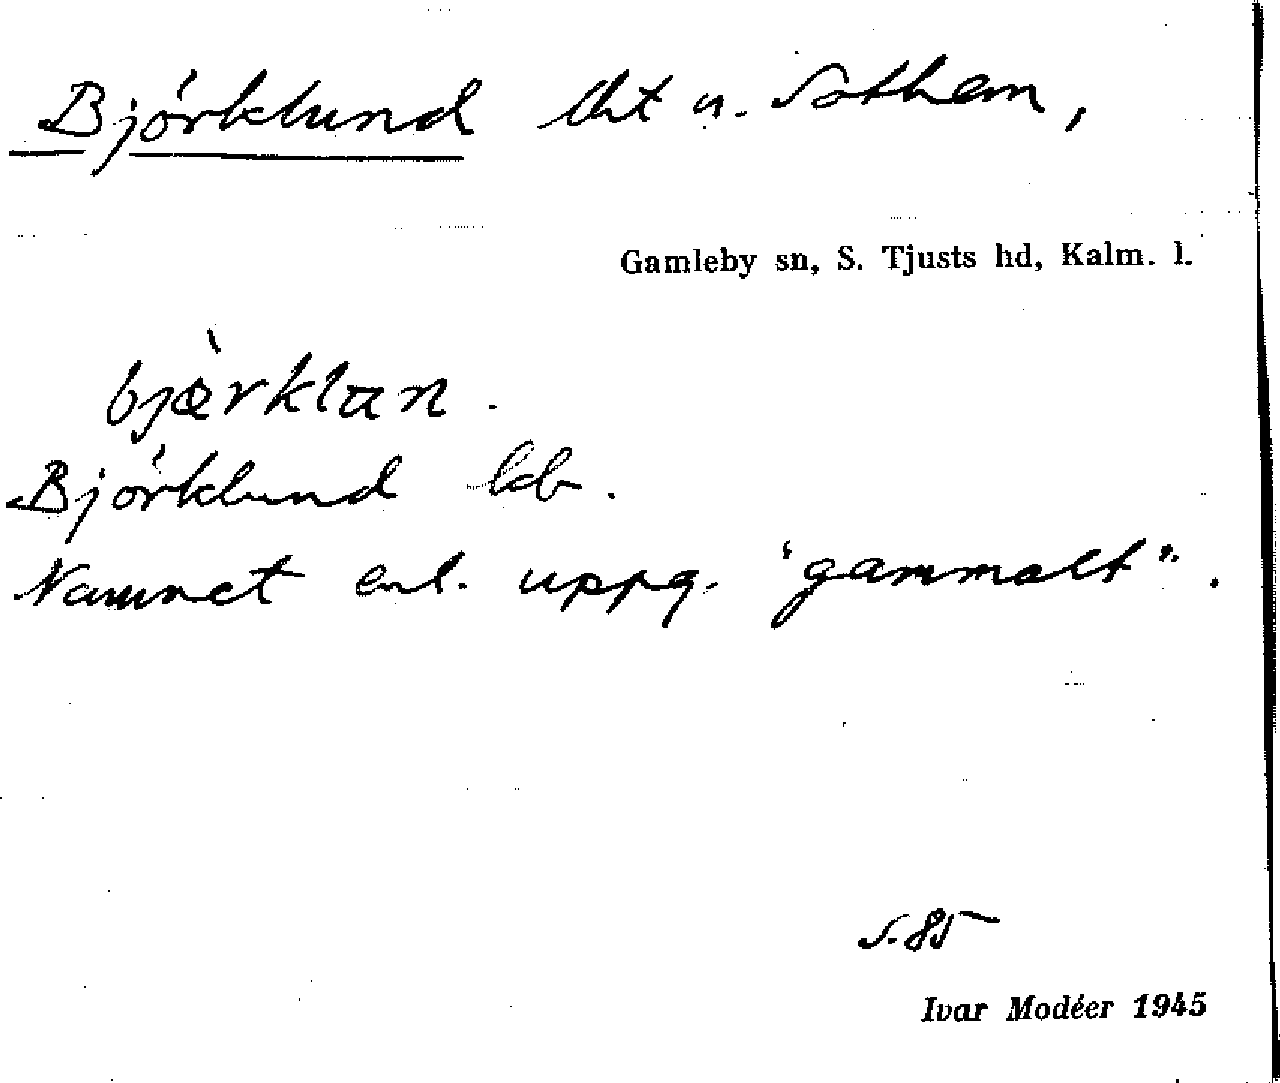 Björklund lht u. Sothem,
Gamleby sn, S. Tjusts hd, Kalm. l.
bjæ̀rklan.
Björklund kb.
Namnet enl. uppg. "gammalt".
s. 85
Ivar Modéer 1945